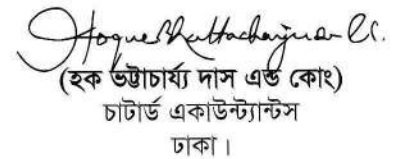 Hoque Bhattacharjee Das & Co.
(হক ভট্টাচার্য্য দাস এন্ড কোং)
চার্টার্ড একাউন্ট্যান্টস
ঢাকা।